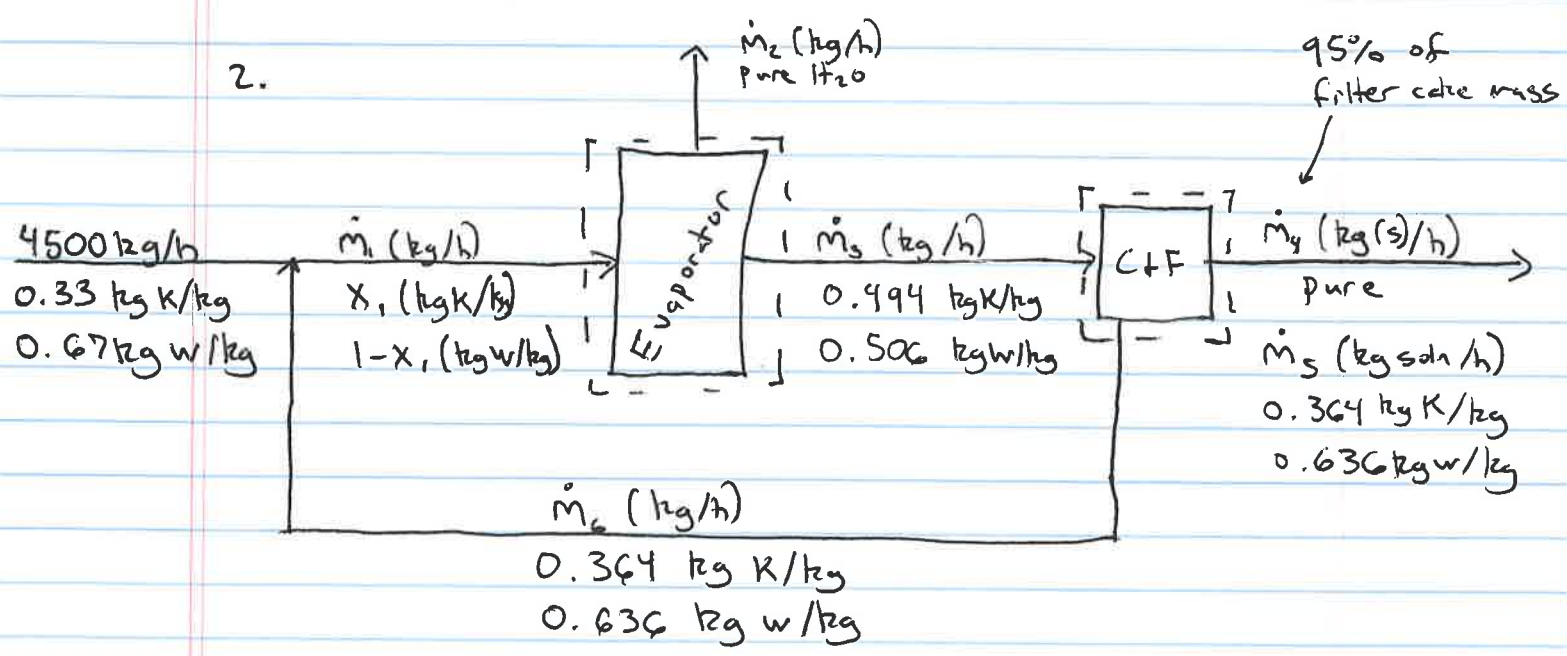 2.
ṁ₂ (kg/h)
pure H₂O
95% of
filter cake mass
4500 kg/h
0.33 kg K/kg
0.67 kg w/kg
ṁ₁ (kg/h)
x₁ (kg K/kg)
1-x₁ (kg w/kg)
Evaporator
ṁ₃ (kg/h)
0.494 kg K/kg
0.506 kg w/kg
C+F
ṁ₄ (kg(s)/h)
pure
ṁ₅ (kg soln/h)
0.364 kg K/kg
0.636 kg w/kg
ṁ₆ (kg/h)
0.364 kg K/kg
0.636 kg w/kg